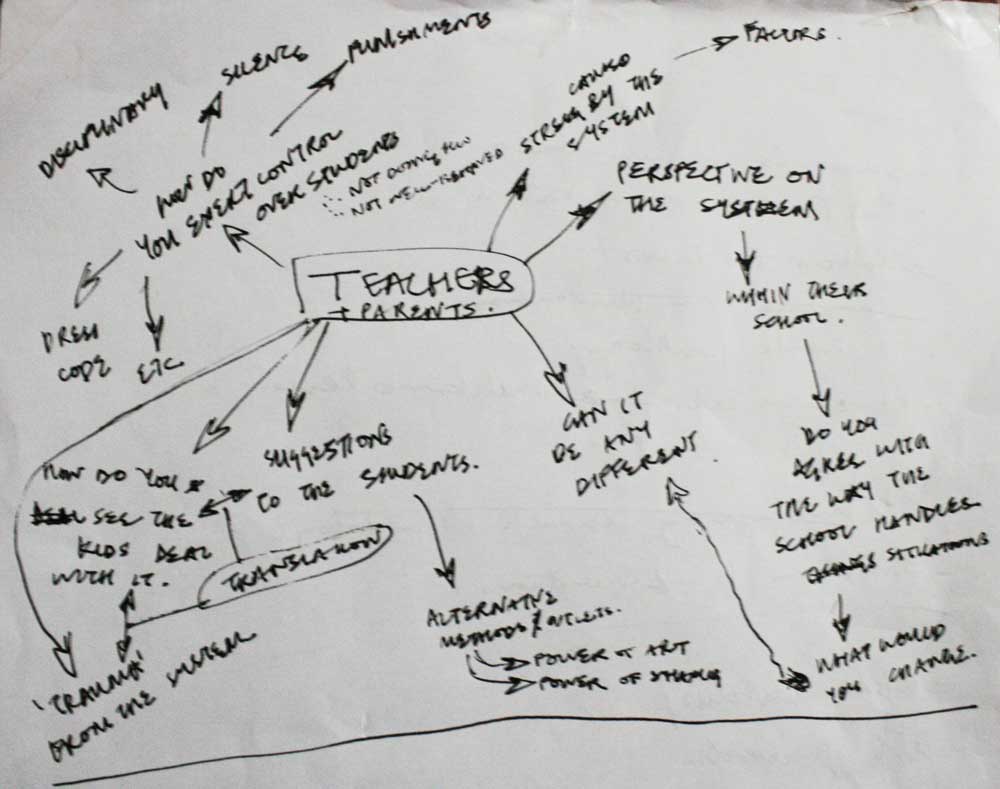 DISCIPLINARY
SILENCE
PUNISHMENTS
HOW DO
YOU EXERT CONTROL
OVER STUDENTS
NOT DOING
NOT WELL-BEHAVED
DRESS
CODE
ETC.
STRESS CAUSED
BY THE
SYSTEM
FACTORS.
PERSPECTIVE ON
THE SYSTEM
WITHIN THEIR
SCHOOL.
DO YOU
AGREE WITH
THE WAY THE
SCHOOL HANDLES
SITUATIONS
WHAT WOULD
YOU CHANGE.
TEACHERS
+ PARENTS.
CAN IT
BE ANY
DIFFERENT.
SUGGESTIONS
TO THE STUDENTS.
ALTERNATIVE
METHODS / OUTLETS.
POWER OF ART
POWER OF
HOW DO YOU
SEE THE
KIDS DEAL
WITH IT.
TRANSLATION
'TRAUMA'
FROM THE SYSTEM